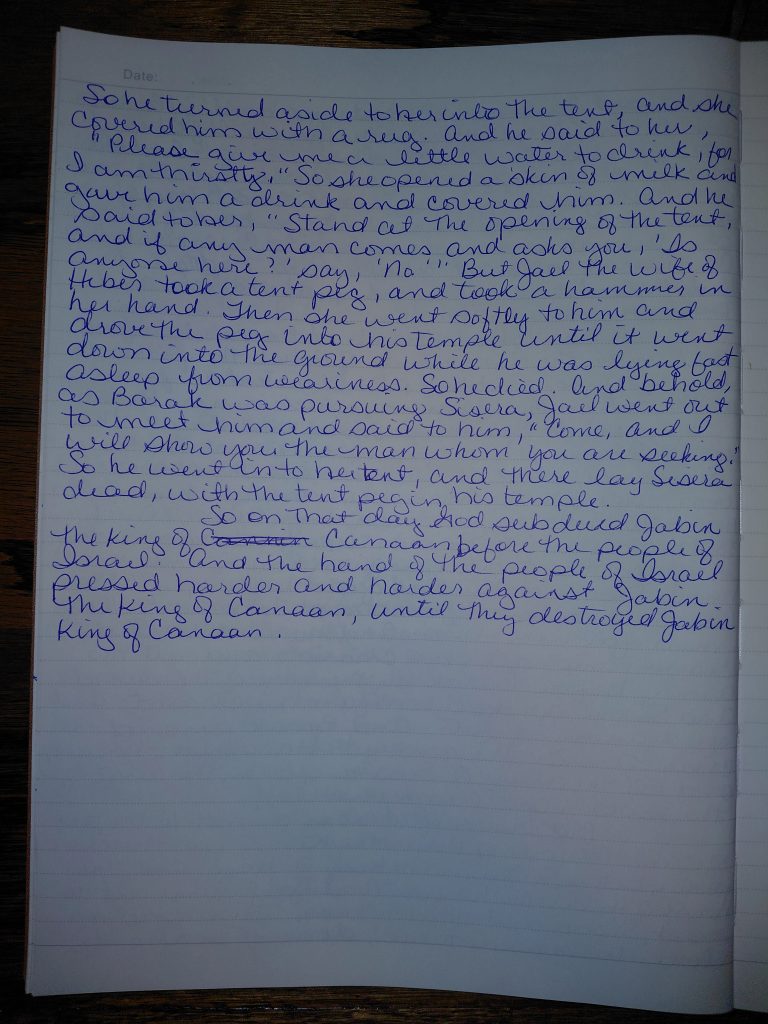 Date:
So he turned aside to her into the tent, and she
covered him with a rug. And he said to her,
"Please give me a little water to drink, for
I am thirsty." So she opened a skin of milk and
gave him a drink and covered him. And he
said to her, "Stand at the opening of the tent,
and if any man comes and asks you, 'Is
anyone here?' say, 'No'" But Jael the wife of
Heber took a tent peg, and took a hammer in
her hand. Then she went softly to him and
drove the peg into his temple until it went
down into the ground while he was lying fast
asleep from weariness. So he died. And behold,
as Barak was pursuing Sisera, Jael went out
to meet him and said to him, "Come, and I
will show you the man whom you are seeking."
So he went in to her tent, and there lay Sisera
dead, with the tent peg in his temple.
So on that day God subdued Jabin
the King of Canaan before the people of
Israel. And the hand of the people of Israel
pressed harder and harder against Jabin
the King of Canaan, until they destroyed Jabin
King of Canaan.